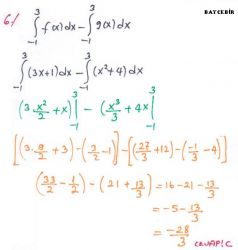 BAYCEBİR
6/ ∫₋₁³ f(x)dx - ∫₋₁³ g(x)dx
∫₋₁³ (3x+1)dx - ∫₋₁³ (x²+4)dx
(3·x²/2 + x)|₋₁³ - (x³/3 + 4x)|₋₁³
[(3·9/2 + 3) - (3/2 - 1)] - [(27/3 + 12) - (-1/3 - 4)]
(33/2 - 1/2) - (21 + 13/3) = 16 - 21 - 13/3
= -5 - 13/3
= -28/3
CEVAP: C